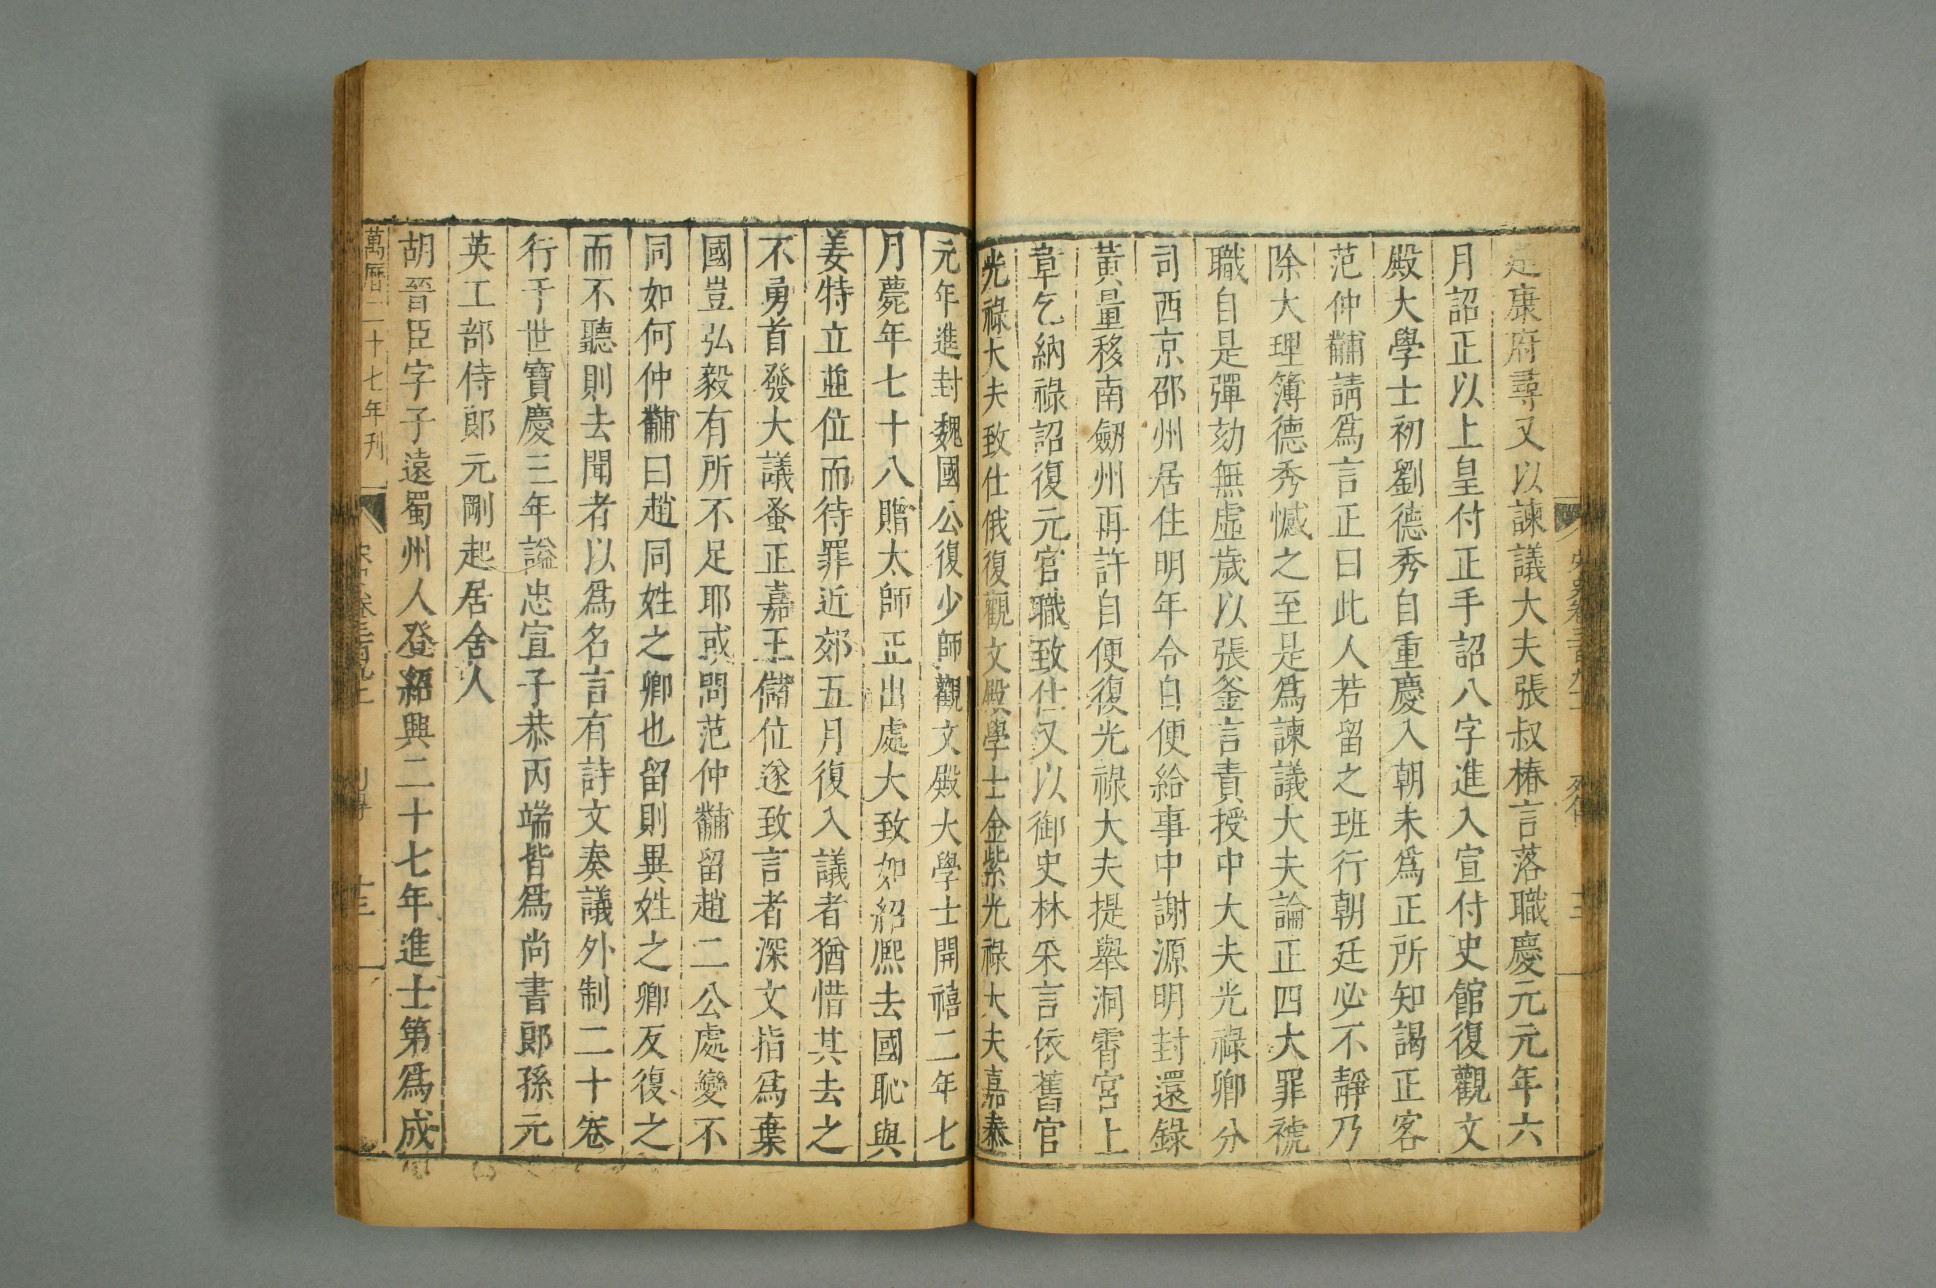 建康府尋又以諫議大夫張叔椿言落職慶元元年六
月詔正以上皇付正手詔八字進入宣付史館復觀文
殿大學士初劉德秀自重慶入朝未爲正所知謁正客
范仲黼請爲言正曰此人若留之班行朝廷必不靜乃
除大理簿德秀憾之至是爲諫議大夫論正四大罪褫
職自是彈劾無虛歲以張釜言責授中大夫光祿卿分
司西京邵州居住明年令自便給事中謝源明封還錄
黃量移南劒州再許自便復光祿大夫提舉洞霄宮上
章乞納祿詔復元官職致仕又以御史林采言依舊官
光祿大夫致仕俄復觀文殿學士金紫光祿大夫嘉泰
元年進封魏國公復少師觀文殿大學士開禧二年七
月薨年七十八贈太師正出處大致如紹熙去國恥與
姜特立並位而待罪近郊五月復入議者猶惜其去之
不勇首發大議蚤正嘉王儲位遂致言者深文指爲棄
國豈弘毅有所不足耶或問范仲黼留趙二公處變不
同如何仲黼曰趙同姓之卿也留則異姓之卿反復之
而不聽則去聞者以爲名言有詩文奏議外制二十卷
行于世寶慶三年謚忠宣子恭丙端皆爲尚書郎孫元
英工部侍郎元剛起居舍人
胡晉臣字子遠蜀州人登紹興二十七年進士第爲成
萬曆二十七年刊 宋史卷三百九十 列傳 十三